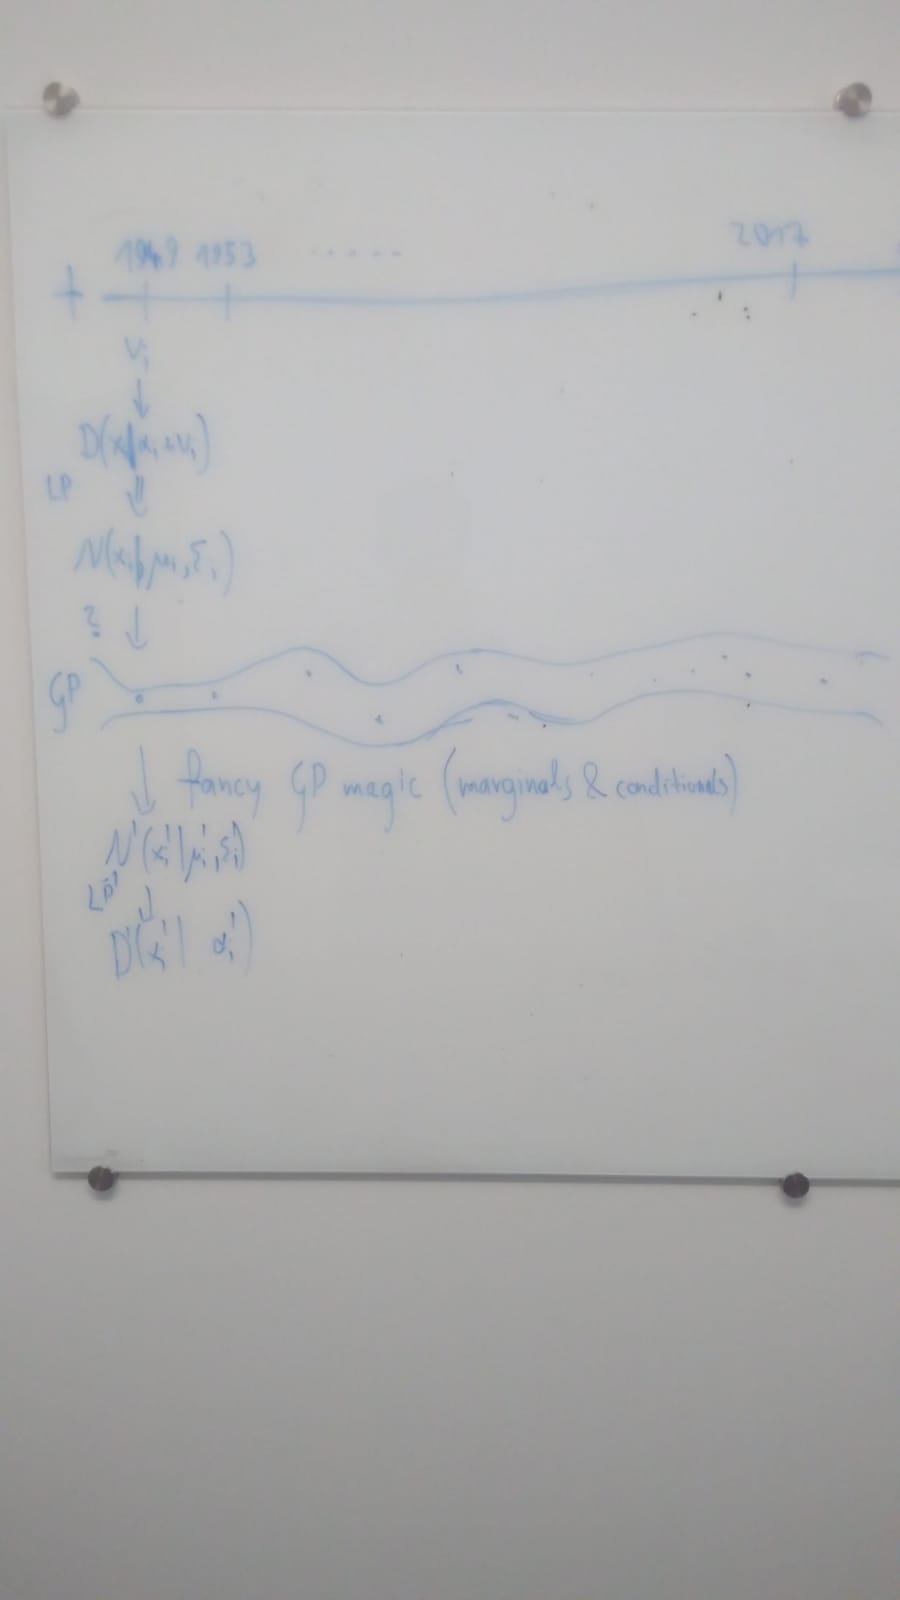 1949 1953 ----- 2017
t
v_i
↓
D(x_i|α_i + v_i)
LP ⇓
N(x_i|μ_i, Σ_i)
? ↓
GP
↓ fancy GP magic (marginals & conditionals)
N'(x_i'|μ_i', Σ_i')
LP' ↓
D'(x_i'| α_i')